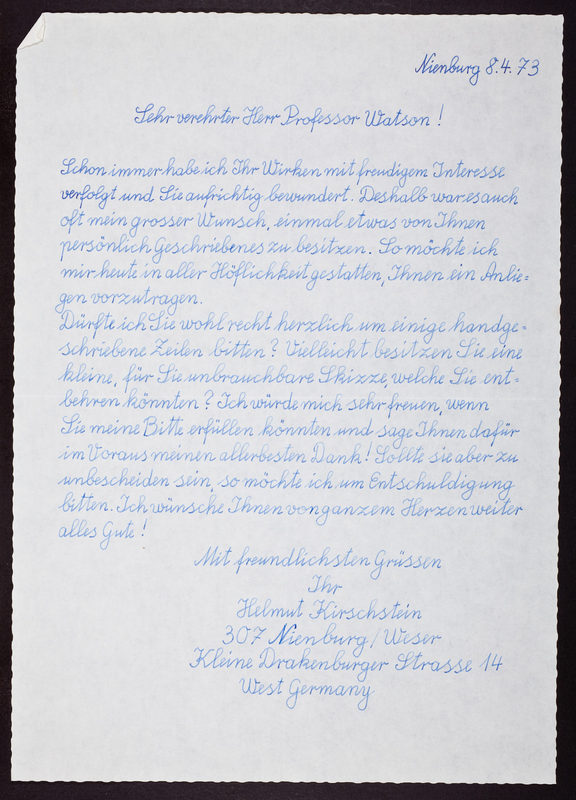 Nienburg 8.4.73
Sehr verehrter Herr Professor Watson!
Schon immer habe ich Ihr Wirken mit freudigem Interesse
verfolgt und Sie aufrichtig bewundert. Deshalb war es auch
oft mein grosser Wunsch, einmal etwas von Ihnen
persönlich Geschriebenes zu besitzen. So möchte ich
mir heute in aller Höflichkeit gestatten, Ihnen ein Anlie=
gen vorzutragen.
Dürfte ich Sie wohl recht herzlich um einige handge=
schriebene Zeilen bitten? Vielleicht besitzen Sie eine
kleine, für Sie unbrauchbare Skizze, welche Sie ent=
behren könnten? Ich würde mich sehr freuen, wenn
Sie meine Bitte erfüllen könnten und sage Ihnen dafür
im Voraus meinen allerbesten Dank! Sollte sie aber zu
unbescheiden sein, so möchte ich um Entschuldigung
bitten. Ich wünsche Ihnen von ganzem Herzen weiter
alles Gute!
Mit freundlichsten Grüssen
Ihr
Helmut Kirschstein
307 Nienburg/Weser
Kleine Drakenburger Strasse 14
West Germany